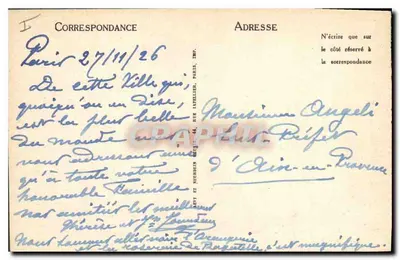 I
CORRESPONDANCE
ADRESSE
N'écrire que sur
le côté réservé à
la correspondance
Paris 27/11/26
De cette Ville qui,
quoiqu'on en dise,
est la plus belle
du monde
vous adressons ainsi
qu'à toute votre
honorable famille
nos amitiés les meilleures
Thérèse et
Nous sommes allés voir l'orangerie
et la roseraie de Bagatelle c'est magnifique.
Monsieur Angeli
Sous Préfet
d'Aix-en-Provence